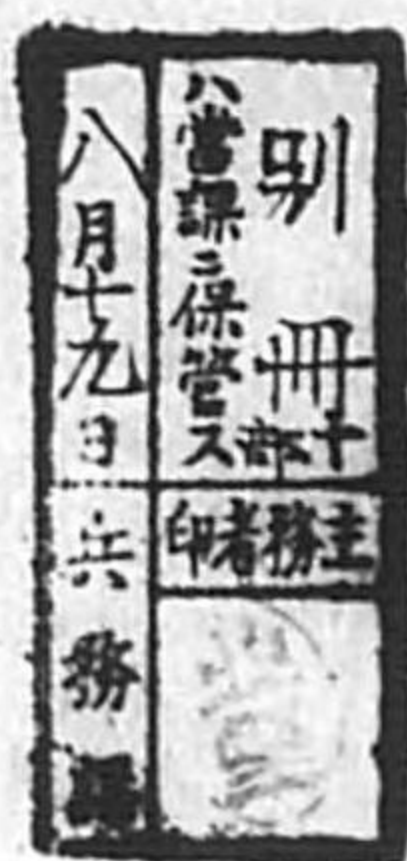 別冊十部
ハ當課ニ保管ス
主務者印
八月十九日
兵務課